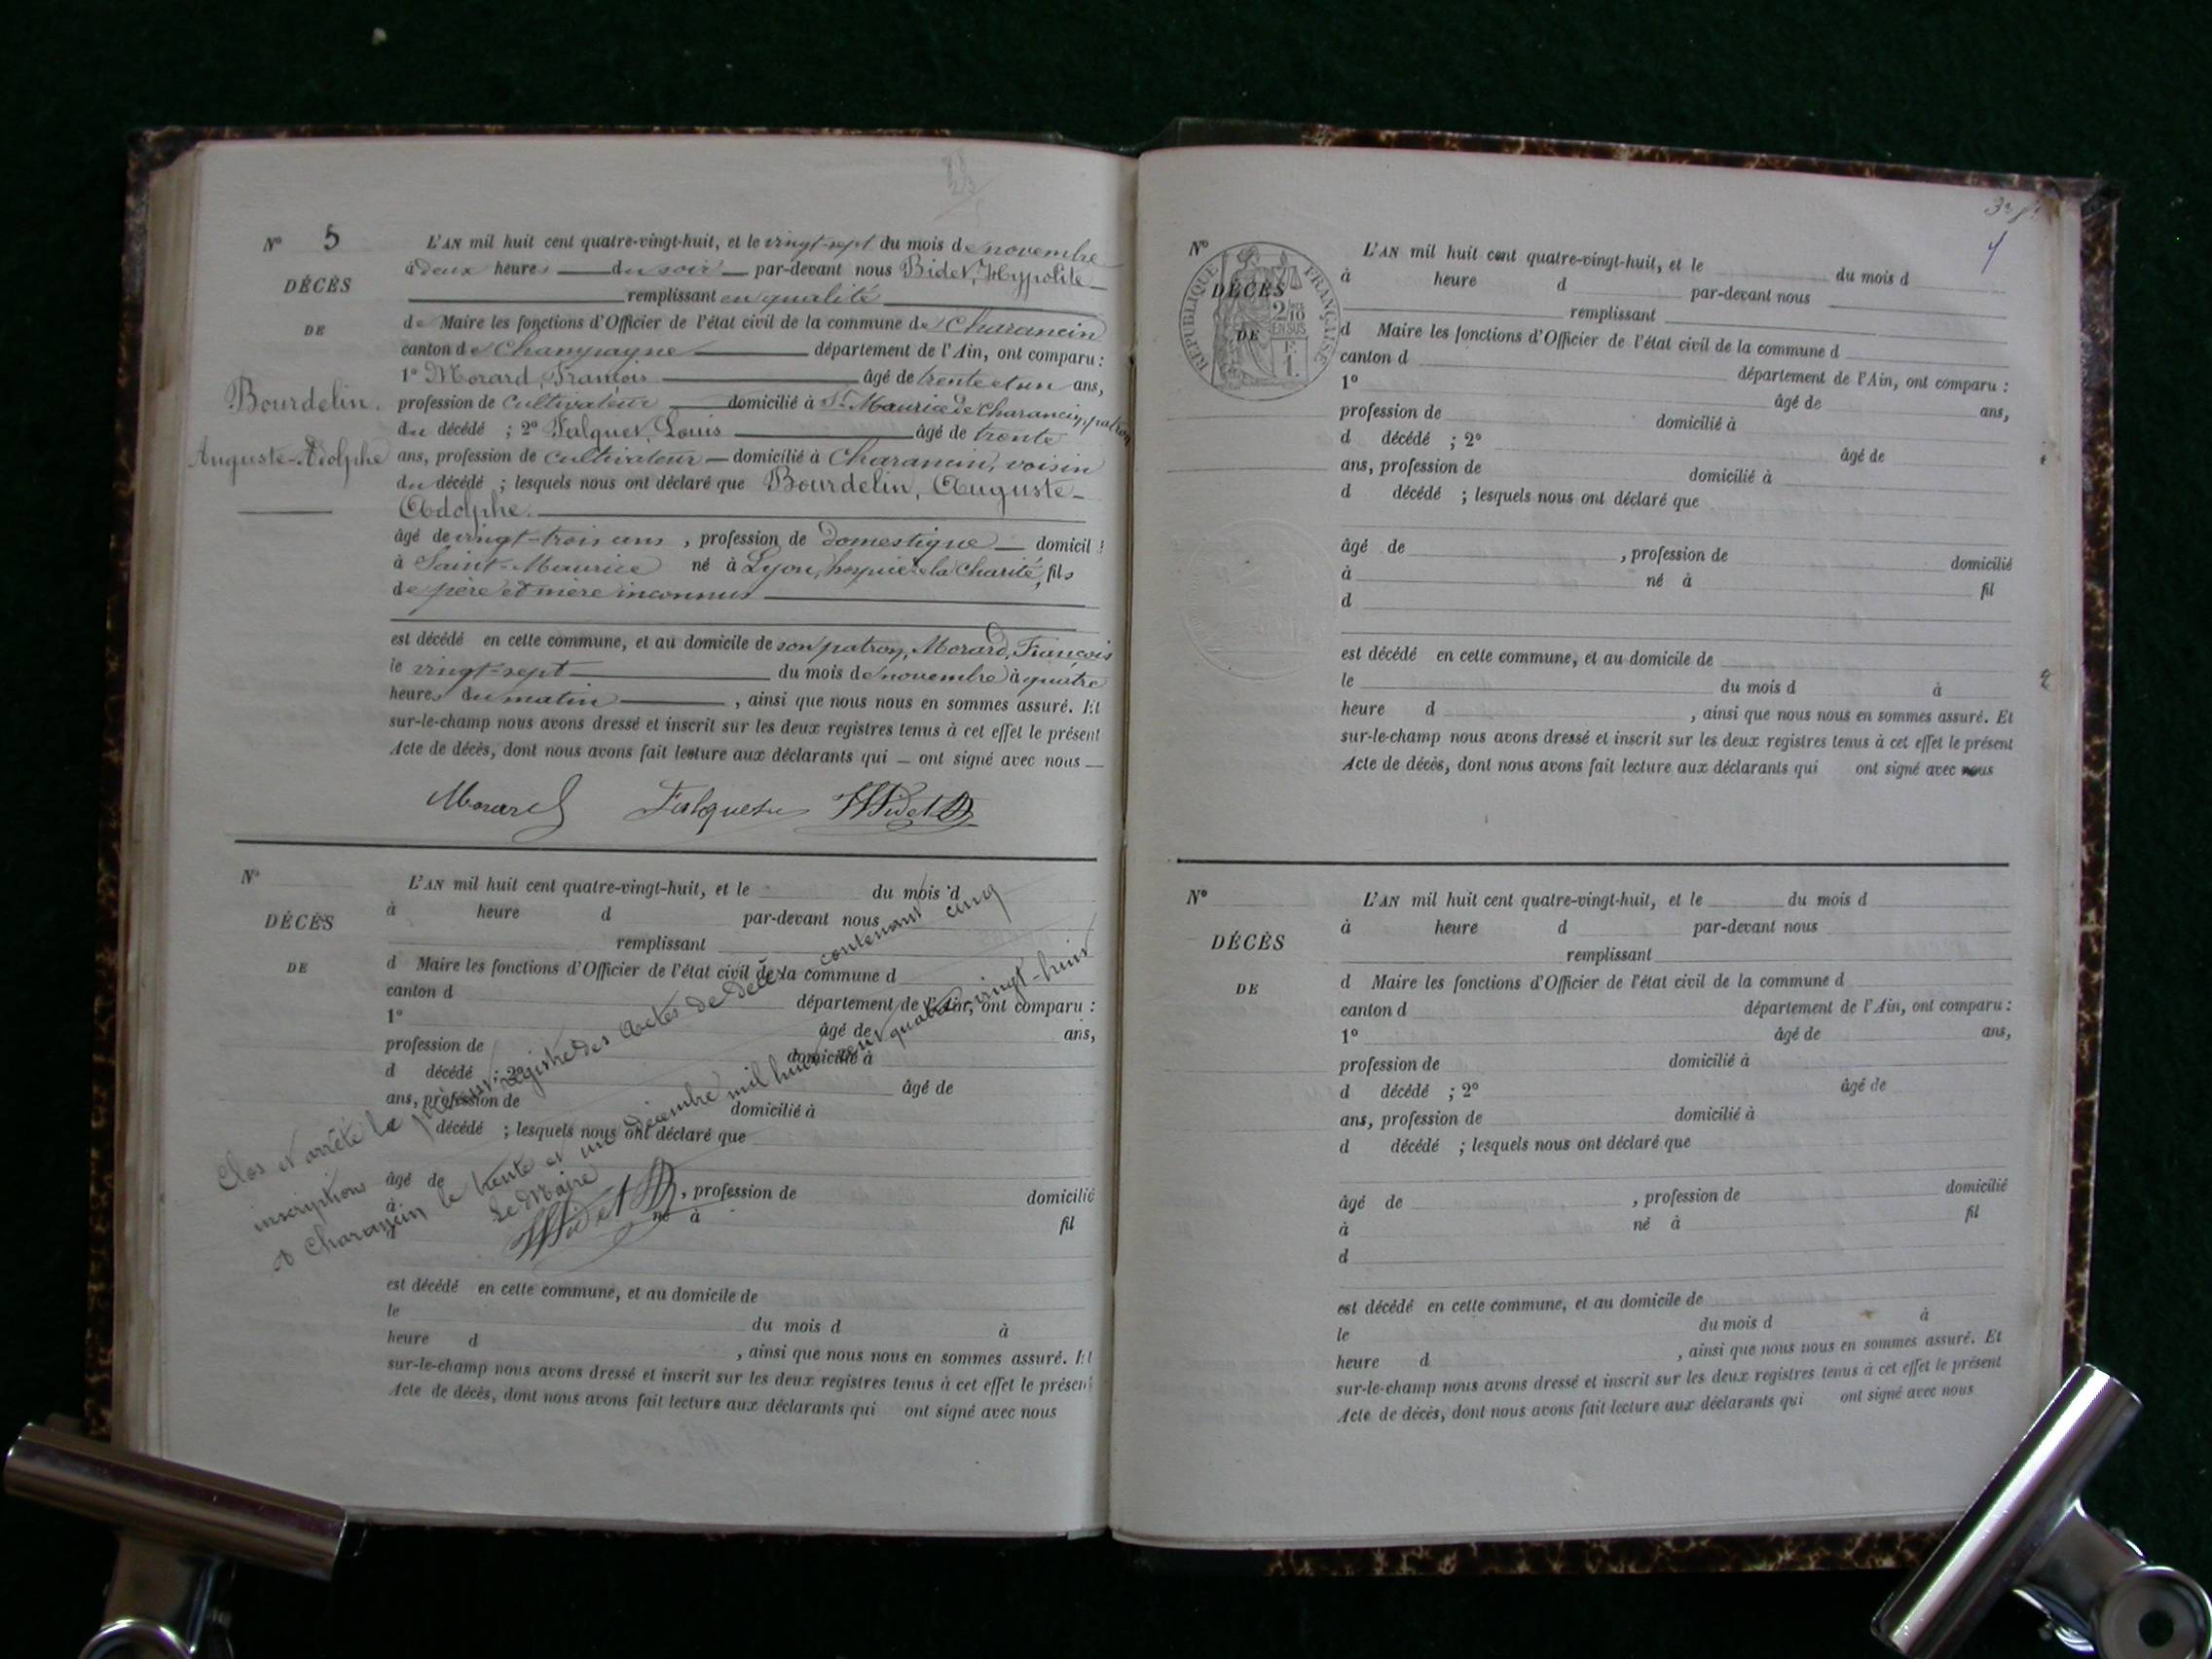 N° 5
DÉCÈS
DE
Bourdelin.
Auguste-Adolphe
L'AN mil huit cent quatre-vingt-huit, et le vingt-sept du mois de novembre
à deux heures du soir par-devant nous Bidet, Hypolite
remplissant en qualité
de Maire les fonctions d'Officier de l'état civil de la commune de Charancin
canton de Champagne département de l'Ain, ont comparu :
1° Morard, Francois âgé de trente et un ans,
profession de cultivateur domicilié à St Maurice de Charancin, patron
du décédé ; 2° Falquet, Louis âgé de trente
ans, profession de cultivateur domicilié à Charancin, voisin
du décédé ; lesquels nous ont déclaré que Bourdelin, Auguste-
Adolphe.
âgé de vingt-trois ans , profession de domestique domicilié
à Saint-Maurice né à Lyon, hospice de la Charité, fils
de père et mère inconnus
est décédé en cette commune, et au domicile de son patron, Morard, François
le vingt-sept du mois de novembre à quatre
heures du matin , ainsi que nous nous en sommes assuré. Et
sur-le-champ nous avons dressé et inscrit sur les deux registres tenus à cet effet le présent
Acte de décès, dont nous avons fait lecture aux déclarants qui ont signé avec nous
Morard Falquet HBidet
N°
DÉCÈS
DE
L'AN mil huit cent quatre-vingt-huit, et le du mois d
à heure d par-devant nous
remplissant
d Maire les fonctions d'Officier de l'état civil de la commune d
canton d département de l'Ain, ont comparu :
1° âgé de ans,
profession de domicilié à
d décédé ; 2° âgé de
ans, profession de domicilié à
décédé ; lesquels nous ont déclaré que
âgé de , profession de domicilié
à né à fil
est décédé en cette commune, et au domicile de
le du mois d à
heure d , ainsi que nous nous en sommes assuré. Et
sur-le-champ nous avons dressé et inscrit sur les deux registres tenus à cet effet le présent
Acte de décès, dont nous avons fait lecture aux déclarants qui ont signé avec nous
Clos et arrêté le présent registre des actes de décès contenant cinq
inscriptions
A Charancin le trente et un décembre mil huit cent quatre-vingt-huit
Le Maire
HBidet
N°
DÉCÈS
DE
RÉPUBLIQUE FRANÇAISE
2/10
EN SUS
L'AN mil huit cent quatre-vingt-huit, et le du mois d
à heure d par-devant nous
remplissant
d Maire les fonctions d'Officier de l'état civil de la commune d
canton d département de l'Ain, ont comparu :
1° âgé de ans,
profession de domicilié à
d décédé ; 2° âgé de
ans, profession de domicilié à
d décédé ; lesquels nous ont déclaré que
âgé de , profession de domicilié
à né à fil
d
est décédé en cette commune, et au domicile de
le du mois d à
heure d , ainsi que nous nous en sommes assuré. Et
sur-le-champ nous avons dressé et inscrit sur les deux registres tenus à cet effet le présent
Acte de décès, dont nous avons fait lecture aux déclarants qui ont signé avec nous
N°
DÉCÈS
DE
L'AN mil huit cent quatre-vingt-huit, et le du mois d
à heure d par-devant nous
remplissant
d Maire les fonctions d'Officier de l'état civil de la commune d
canton d département de l'Ain, ont comparu :
1° âgé de ans,
profession de domicilié à
d décédé ; 2° âgé de
ans, profession de domicilié à
d décédé ; lesquels nous ont déclaré que
âgé de , profession de domicilié
à né à fil
d
est décédé en cette commune, et au domicile de
le du mois d à
heure d , ainsi que nous nous en sommes assuré. Et
sur-le-champ nous avons dressé et inscrit sur les deux registres tenus à cet effet le présent
Acte de décès, dont nous avons fait lecture aux déclarants qui ont signé avec nous